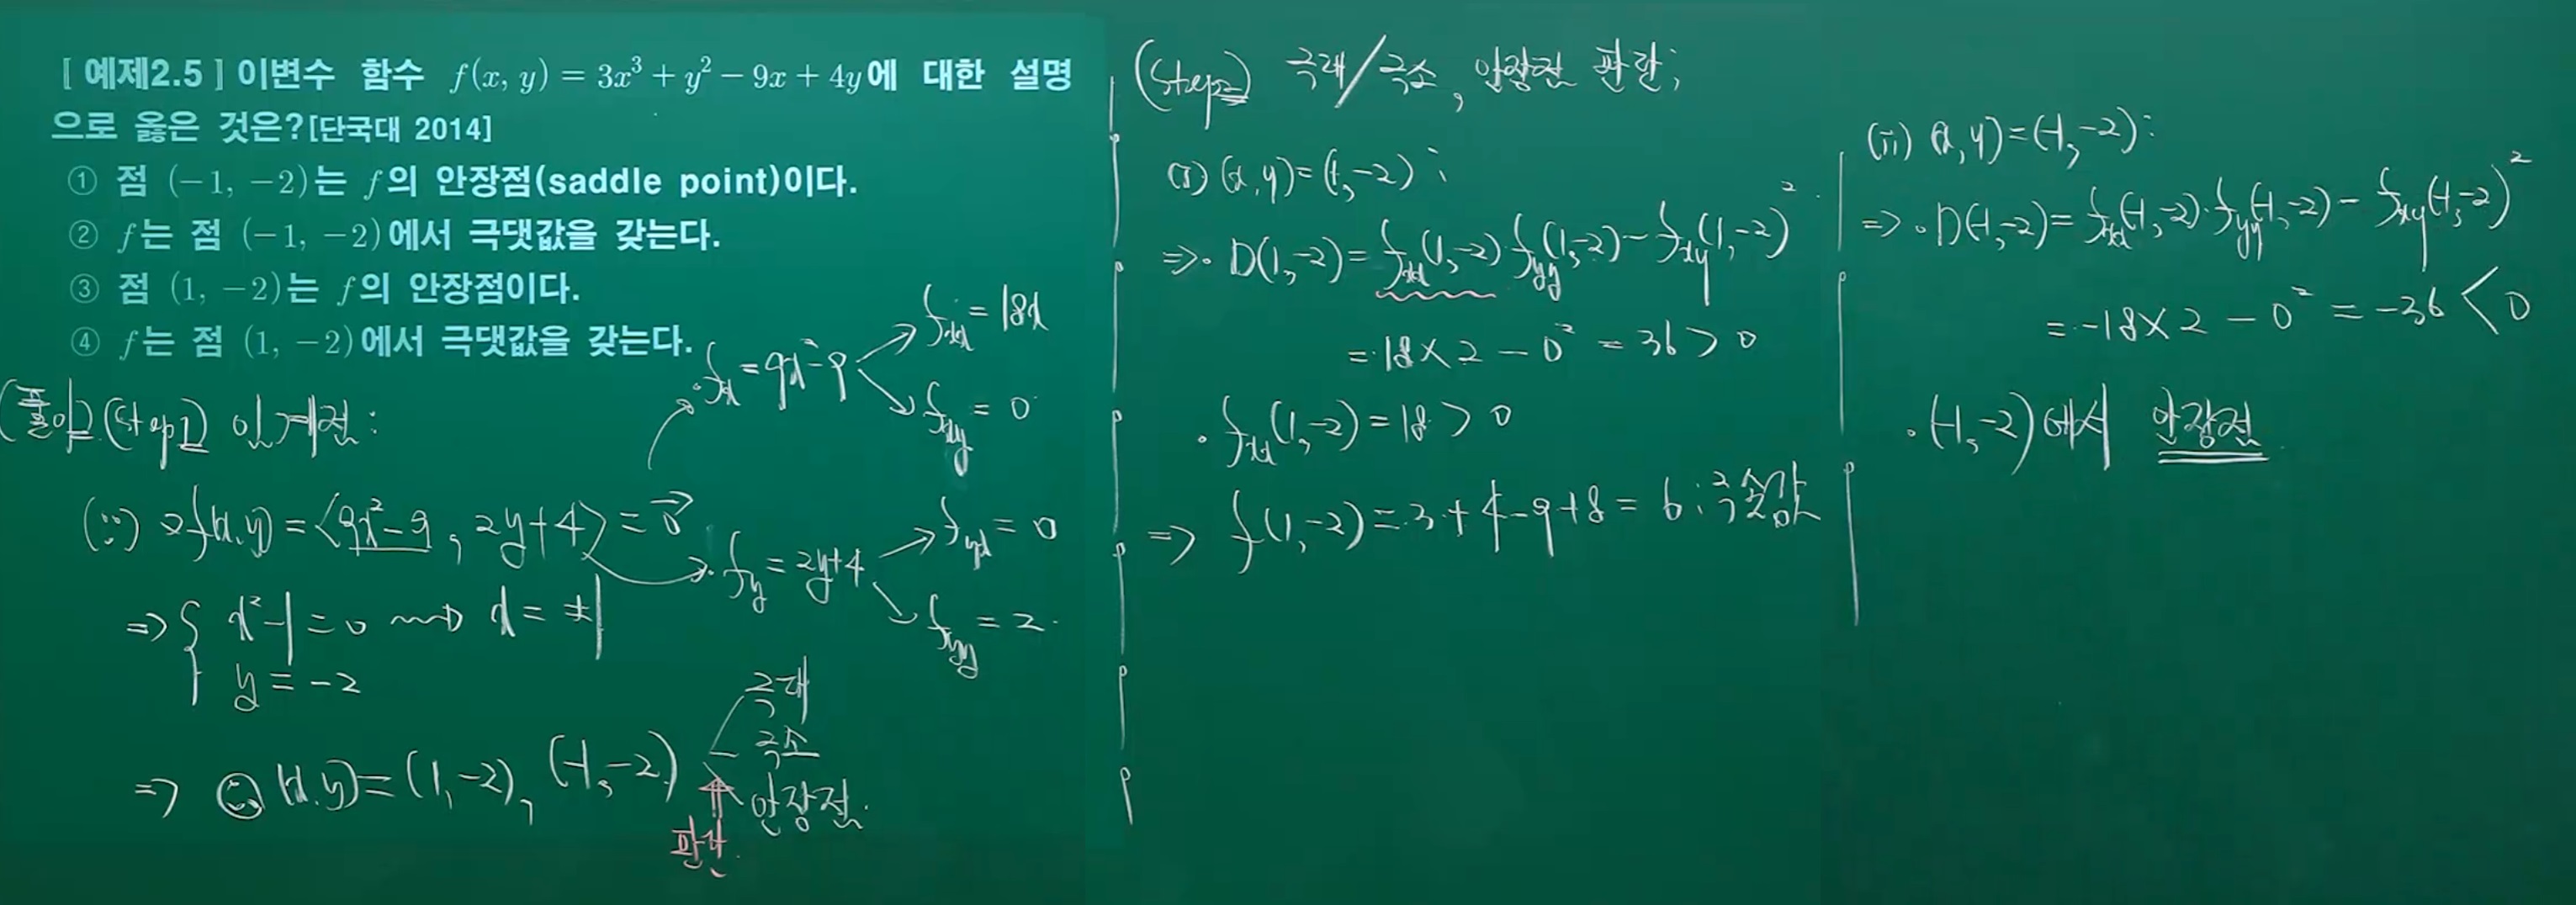 [ 예제2.5 ] 이변수 함수 f(x, y) = 3x³ + y² − 9x + 4y에 대한 설명
으로 옳은 것은?[단국대 2014]
① 점 (−1, −2)는 f의 안장점(saddle point)이다.
② f는 점 (−1, −2)에서 극댓값을 갖는다.
③ 점 (1, −2)는 f의 안장점이다.
④ f는 점 (1, −2)에서 극댓값을 갖는다.
(풀이) (step1) 임계점 :
(∵) ∇f(x,y) = <9x²−9, 2y+4> = 0⃗
⇒ { x²−1 = 0 ⇝ x = ±1
y = −2
⇒ ∴ (x,y) = (1,−2), (−1,−2)
극대
극소
안장점.
판단.
· fx = 9x²−9
fxx = 18x
fxy = 0
· fy = 2y+4
fyx = 0
fyy = 2
(step2) 극대/극소, 안장점 판단;
(i) (x,y) = (1,−2) ;
⇒ · D(1,−2) = fxx(1,−2) fyy(1,−2) − fxy(1,−2)²
= 18×2 − 0² = 36 > 0
· fxx(1,−2) = 18 > 0
⇒ f(1,−2) = 3+4−9+8 = 6 : 극솟값
(ii) (x,y) = (−1,−2) :
⇒ · D(−1,−2) = fxx(−1,−2)·fyy(−1,−2) − fxy(−1,−2)²
= −18×2 − 0² = −36 < 0
· (−1,−2)에서 안장점